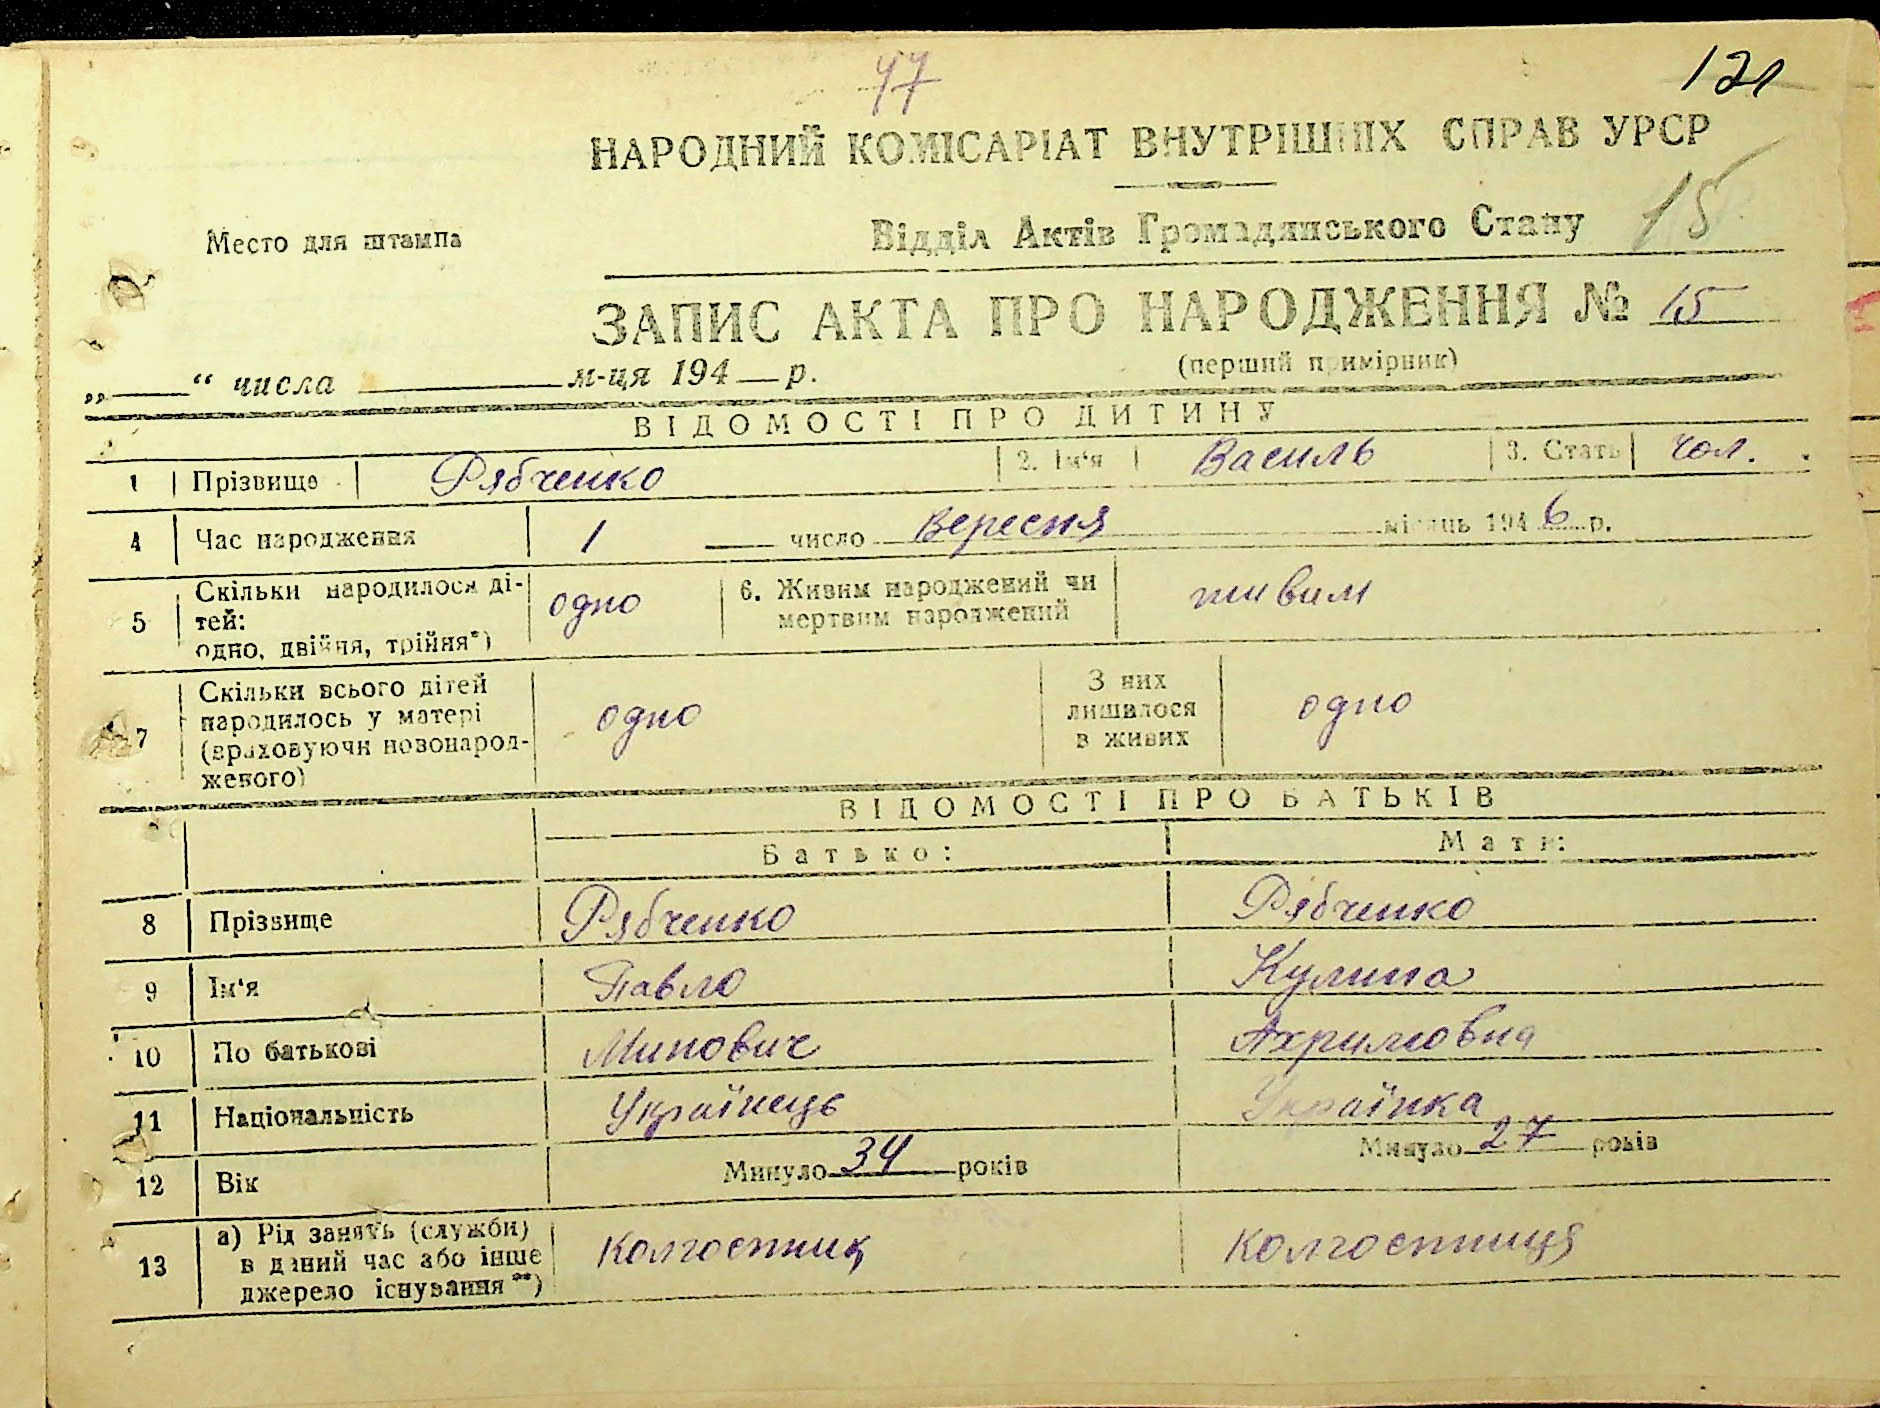 47
121
НАРОДНИЙ КОМІСАРІАТ ВНУТРІШНІХ СПРАВ УРСР
Место для штампа
Відділ Актів Громадянського Стану
15
ЗАПИС АКТА ПРО НАРОДЖЕННЯ № 15
(перший примірник)
„ “ числа м-ця 194 р.
ВІДОМОСТІ ПРО ДИТИНУ
1 Прізвище Рябченко 2. Ім'я Василь 3. Стать чол.
4 Час народження 1 число Вересня місяць 1946 р.
5 Скільки народилося ді-
тей:
одно, двійня, трійня*)
одно
6. Живим народжений чи
мертвим народжений
живим
7 Скільки всього дітей
народилось у матері
(враховуючи новонарод-
женого)
одно
З них
лишилося
в живих
одно
ВІДОМОСТІ ПРО БАТЬКІВ
Батько: Мати:
8 Прізвище Рябченко Рябченко
9 Ім'я Павло Кулина
10 По батькові Минович Ахримовна
11 Національність Українець Українка
12 Вік Минуло 34 років Минуло 27 років
13 а) Рід занять (служби)
в даний час або інше
джерело існування**)
Колгоспник Колгоспниця